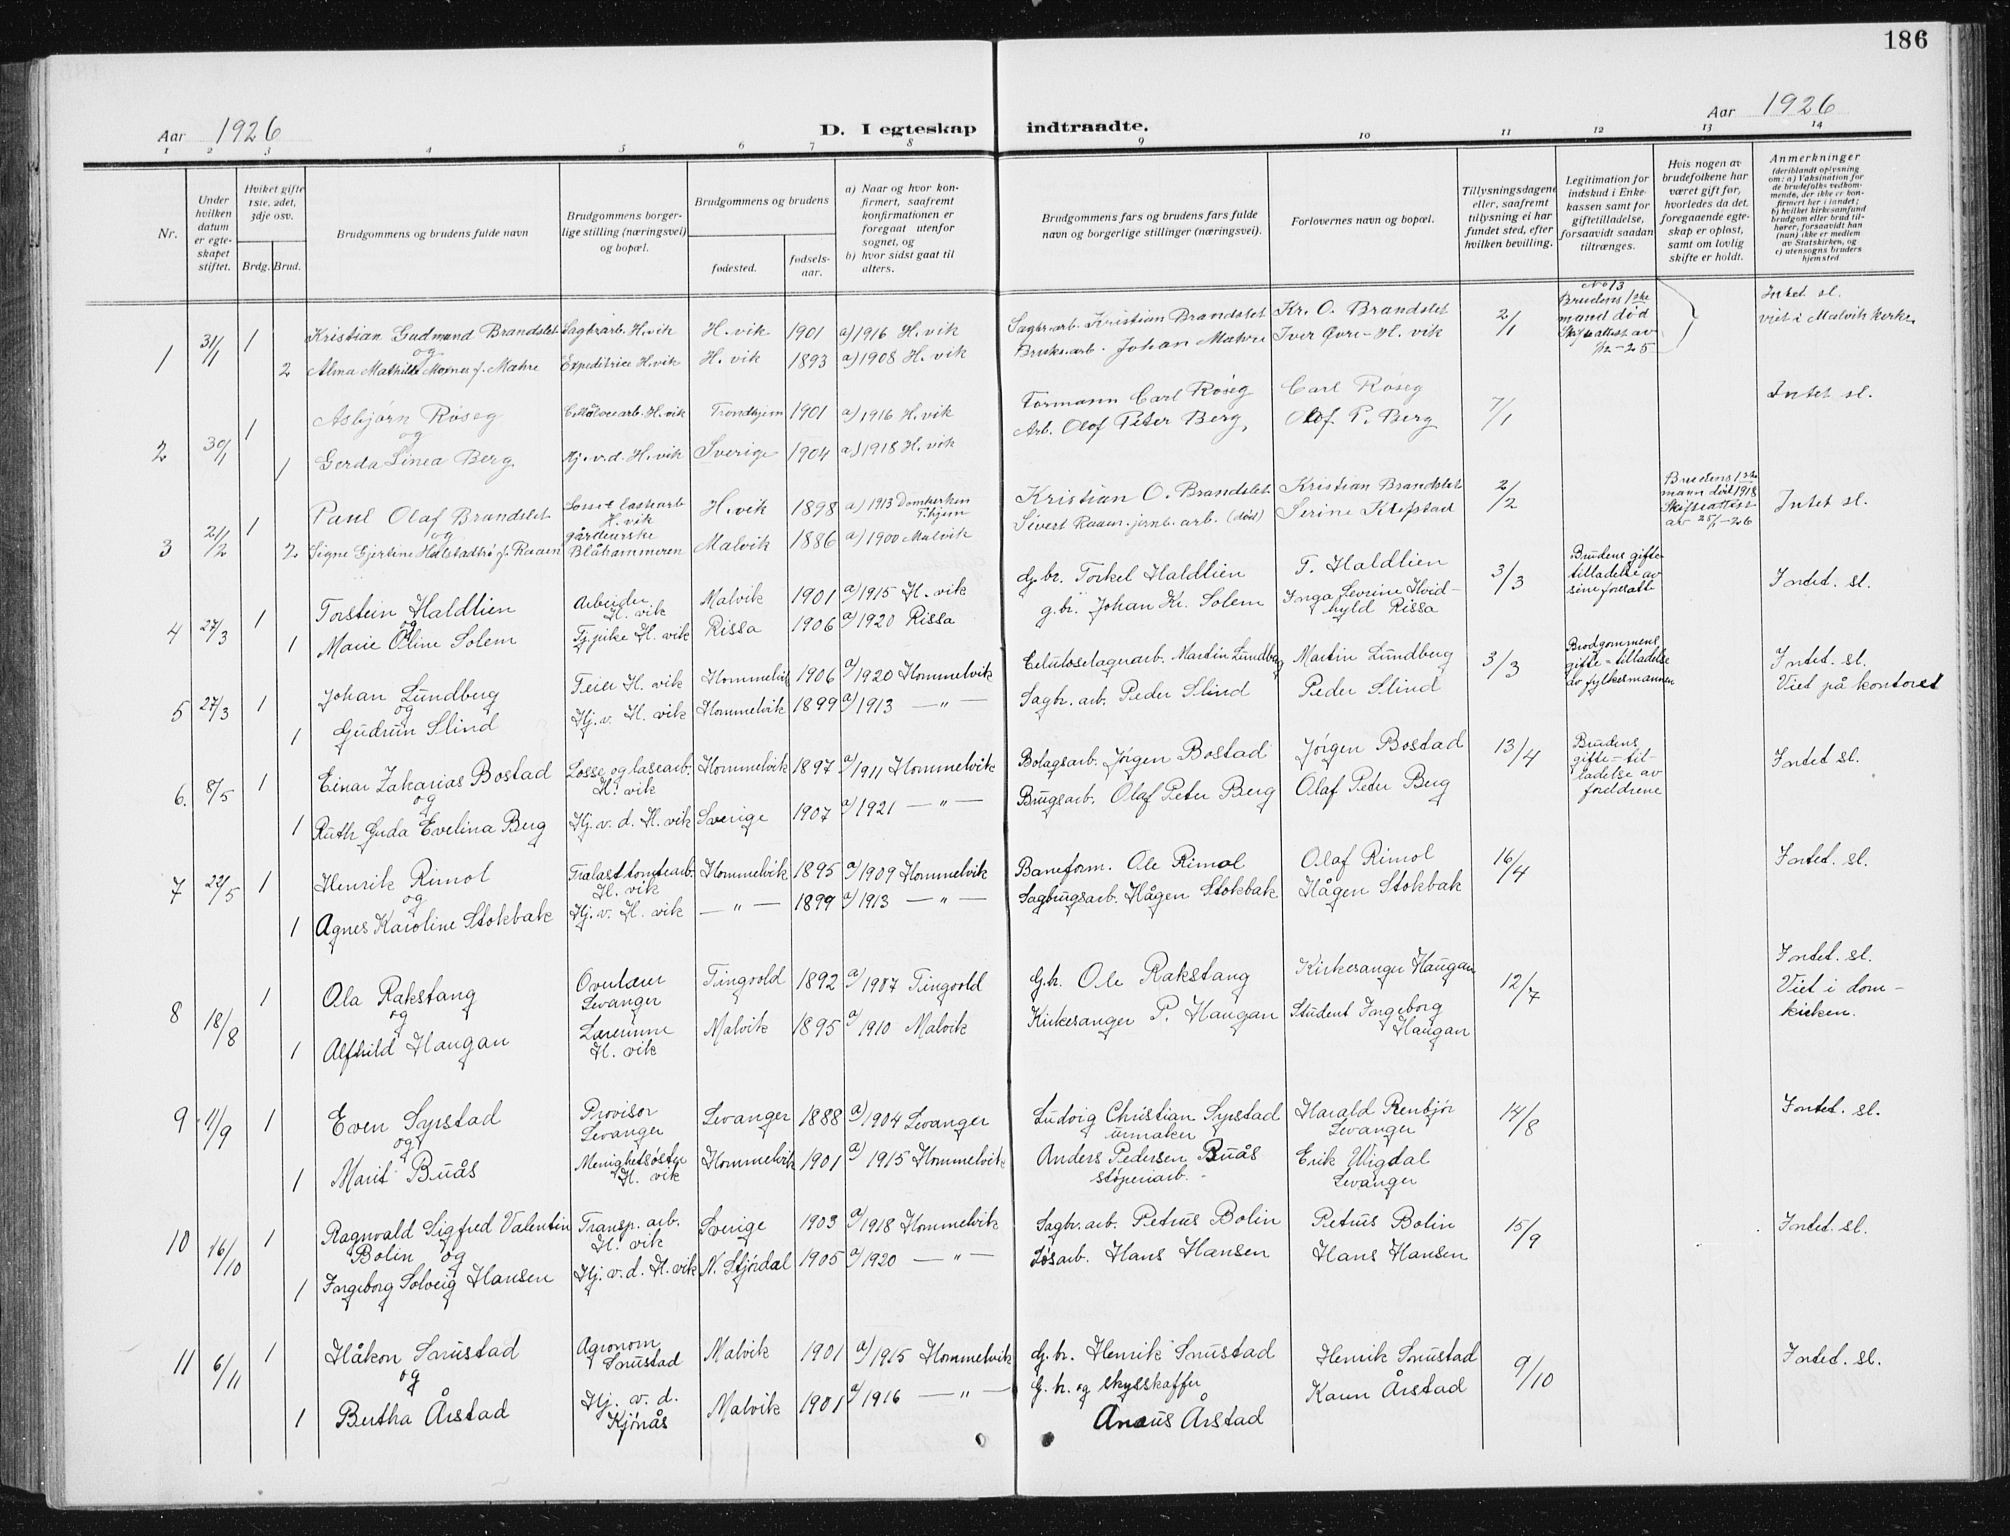 186
Aar 1926
D. I egteskap indtraadte.
Aar 1926
1 2 3 4 5 6 7 8 9 10 11 12 13 14
Nr.
Under hvilken datum er egteskapet stiftet.
Hvilket gifte 1ste, 2det, 3dje osv.
Brdg. Brud.
Brudgommens og brudens fulde navn
Brudgommens borgerlige stilling (næringsvei) og bopæl.
Brudgommens og brudens
fødested.
fødselsaar.
a) Naar og hvor konfirmert, saafremt konfirmationen er foregaat utenfor sognet, og
b) hvor sidst gaat til alters.
Brudgommens fars og brudens fars fulde navn og borgerlige stillinger (næringsvei).
Forlovernes navn og bopæl.
Tillysningsdagene eller, saafremt tillysning ei har fundet sted, efter hvilken bevilling.
Legitimation for indskud i Enkekassen samt for giftetilladelse, forsaavidt saadan tiltrænges.
Hvis nogen av brudefolkene har været gift før, hvorledes da det foregaaende egteskap er opløst, samt om lovlig skifte er holdt.
Anmerkninger (deriblandt oplysning om: a) Vaksination for de brudefolks vedkommende, der ikke er konfirmert her i landet; b) hvilket kirkesamfund brudgom eller brud tilhører, forsaavidt han (hun) ikke er medlem av Statskirken, og c) utensogns bruders hjemsted
1 31/1 1 Kristian Gudmund Brandslet Sagbr.arb. H.vik H. vik 1901 a) 1916 H. vik Sagbr.arb. Kristian Brandslet Kr. O. Brandslet 2/1 No 13 Brudens 1ste mand død Skifteattest av Intet sl. viet i Malvik kirke
og
2 Alma Mathilde f. Mæhre Expeditrice H.vik H. vik 1893 a) 1908 H. vik Johan Mæhre Iver Øvre - H. vik
2 30/1 1 Asbjørn Røseg H. vik Trondhjem 1901 a) 1916 H. vik Formann Carl Røseg Carl Røseg 7/1 Intet sl.
og
1 Gerda Linea Berg Hj. v. d. H. vik Sverige 1904 a) 1918 H. vik Arb. Olof Peter Berg, Olof P. Berg
3 21/2 1 Paul Olaf Brandslet H. vik H. vik 1898 a) 1913 Domkirken T.hjem Kristian O. Brandslet Kristian Brandslet 2/2 Brudens 1ste mann død 1918 Skifteattest av 25/1-26 Intet sl.
og
2 Signe Gjertine Halstadtrø f. Raaen gårdeierske Blåhammeren Malvik 1886 a) 1900 Malvik Sivert Raaen jernb. arb. (død) Serine Klefstad
4 27/3 1 Torstein Haldlien Arbeider H. vik Malvik 1901 a) 1915 H. vik g.br. Torkel Haldlien T. Haldlien 3/3 Brudens giftetilladelse av sine foresatte Intet. sl.
og
1 Marie Oline Solem Tj.pike H. vik Rissa 1906 a) 1920 Rissa g.br. Johan Kr. Solem Inga Severine Hvidhyld Rissa
5 27/3 1 Johan Lundberg Feier H. vik Hommelvik 1906 a) 1920 Hommelvik Celuloselagerarb. Martin Lundberg Martin Lundberg 3/3 Brudgommens gifte-tilladelse av fylkesmannen Intet. sl. Viet på kontoret
og
1 Gudrun Slind Hj. v. H. vik Hommelvik 1899 a) 1913 — " — Sagbr. arb. Peder Slind Peder Slind
6. 8/5 1 Einar Zakarias Bostad Losse og lastearb. H. vik Hommelvik 1897 a) 1911 Hommelvik Bolagsarb. Jørgen Bostad Jørgen Bostad 13/4 Brudens gifte-tilladelse av foreldrene Intet sl.
og
1 Ruth Guda Evelina Berg Hj. v. d. H. vik Sverige 1907 a) 1921 — " — Brugsarb. Olaf Peter Berg Olaf Peter Berg
7 22/5 1 Henrik Rimol Trælasttomtearb. H. vik Hommelvik 1895 a) 1909 Hommelvik Baneform. Ole Rimol Olaf Rimol 16/4 Intet. sl.
og
1 Agnes Karoline Stokbak Hj. v. H. vik — " — 1899 a) 1913 — " — Sagbrugsarb. Hågen Stokbak Hågen Stokbak
8 18/8 1 Ola Rakstang Overlærer Levanger Tingvold 1892 a) 1907 Tingvold G.br. Ole Rakstang Kirkesanger Haugan 12/7 Intet. sl. Viet i domkirken.
og
1 Alfhild Haugan Lærerinne H. vik Malvik 1895 a) 1910 Malvik Kirkesanger P. Haugan Student Ingeborg Haugan
9 11/9 1 Even Syrstad Provisor Levanger Levanger 1888 a) 1904 Levanger Ludvig Christian Syrstad urmaker Harald Renbjør Levanger 14/8 Intet. sl.
og
1 Marit Buås Menighetssøster H. vik Hommelvik 1901 a) 1915 Hommelvik Anders Pedersen Buås støperiarb. Erik Wigdal Levanger
10 16/10 1 Ragnvald Sigfred Valentin Bolin og Transp. arb. H. vik Sverige 1903 a) 1918 Hommelvik Sagbr. arb. Petrus Bolin Petrus Bolin 15/9 Intet. sl.
1 Ingeborg Solveig Hansen Hj. v. d. H. vik N. Stjørdal 1905 a) 1920 — " — Løsarb. Hans Hansen Hans Hansen
11 6/11 1 Håkon Snustad Agronom Snustad Malvik 1901 a) 1915 Hommelvik G. br. Henrik Snustad Henrik Snustad 9/10 Intet. sl.
og
1 Bertha Årstad Hj. v. d. Kjønås Malvik 1901 a) 1916 — " — G. br. og skysskaffer Årstad Karen Årstad